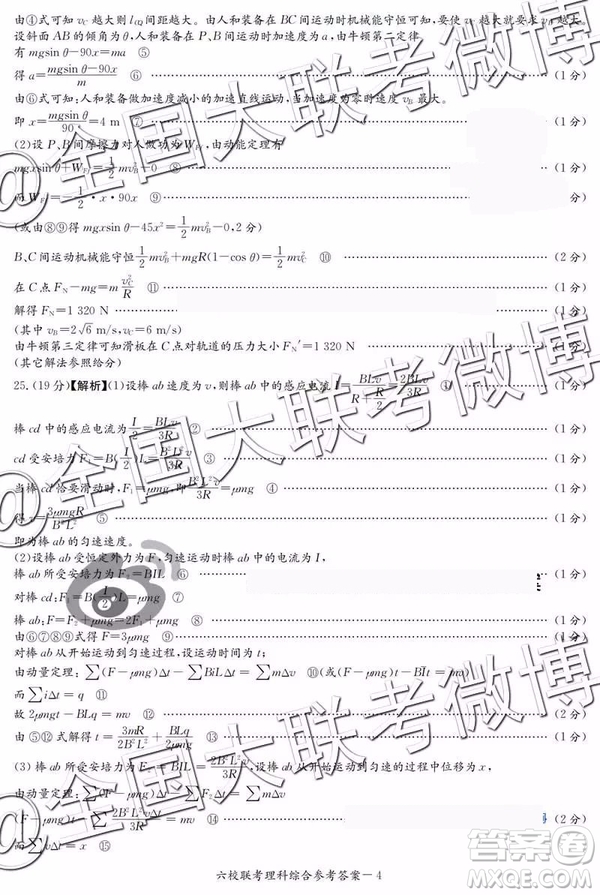 由④式可知 v越大则l_CQ间距越大。由人和装备在BC间运动时机械能守恒可知,要使v_C越大就要v_B越大
设斜面AB的倾角为θ,人和装备在P、B间运动时加速度为a,由牛顿第二定律
有mgsin θ-90x=ma ⑤
得a=(mgsin θ-90x)/m ⑥ (1分)
由⑥式可知:人和装备做加速度减小的加速直线运动,当加速度为零时速度v_B最大。
即x=mgsin θ/90=4 m ⑦ (1分)
(2)设P、B间摩擦力对人做功为W_Ff,由动能定理有
mgxsin θ+W_Ff=½mv_B²-0 ⑧ (1分)
而W_Ff=-½·x·90x ⑨ (1分)
(或由⑧⑨得mgxsin θ-45x²=½mv_B²-0,2分)
B、C间运动机械能守恒½mv_B²+mgR(1-cos θ)=½mv_C² ⑩ (2分)
在C点F_N-mg=m v_C²/R ⑪ (1分)
解得F_N=1 320 N (1分)
(其中v_B=2√6 m/s,v_C=6 m/s)
由牛顿第三定律可知滑板在C点对轨道的压力大小F_N′=1 320 N (1分)
(其它解法参照给分)
25.(19分)【解析】(1)设棒ab速度为v,则棒ab中的感应电流I=BLv/(R+R/2)=2BLv/3R ① (1分)
棒cd中的感应电流为I/2=BLv/3R ② (1分)
cd受安培力F₁=B(I/2)L=B²L²v/3R ③ (1分)
当棒cd恰要滑动时,F₁=μmg,即B²L²v/3R=μmg ④ (1分)
得v=3μmgR/B²L² ⑤ (1分)
即为棒ab的匀速速度。
(2)设棒ab受恒定外力为F,匀速运动时棒ab中的电流为I,
棒ab所受安培力为F₂=BIL ⑥ (1分)
对棒cd:F₁=B(I/2)L=μmg ⑦ (1分)
棒ab:F=F₂+μmg ⑧ (1分)
由⑥⑦⑧⑨式得F=3μmg ⑨ (1分)
对棒ab从开始运动到匀速过程,设运动时间为t;
由动量定理:∑(F-μmg)Δt-∑BiLΔt=∑mΔv ⑩(或(F-μmg)t-BĪLt=mv) (1分)
而∑iΔt=q ⑪ (1分)
故2μmgt-BLq=mv ⑫ (1分)
由⑤⑫式解得t=3mR/2B²L²+Bq
(3)棒ab所受安培力为F₂=BIL=2B²L²v/3R,设棒ab从开始运动到匀速的过程中位移为x,
由动量定理:∑(F-μmg)Δt-∑(2B²L²v/3R)Δt=∑mΔv
(F-μmg)t-(2B²L²/3R)x=mv (2分)
而
六校联考理科综合参考答案-4
@全国大联考微博
@全国大联考微博
@全国大联考微博
答案圈
MXQE.COM